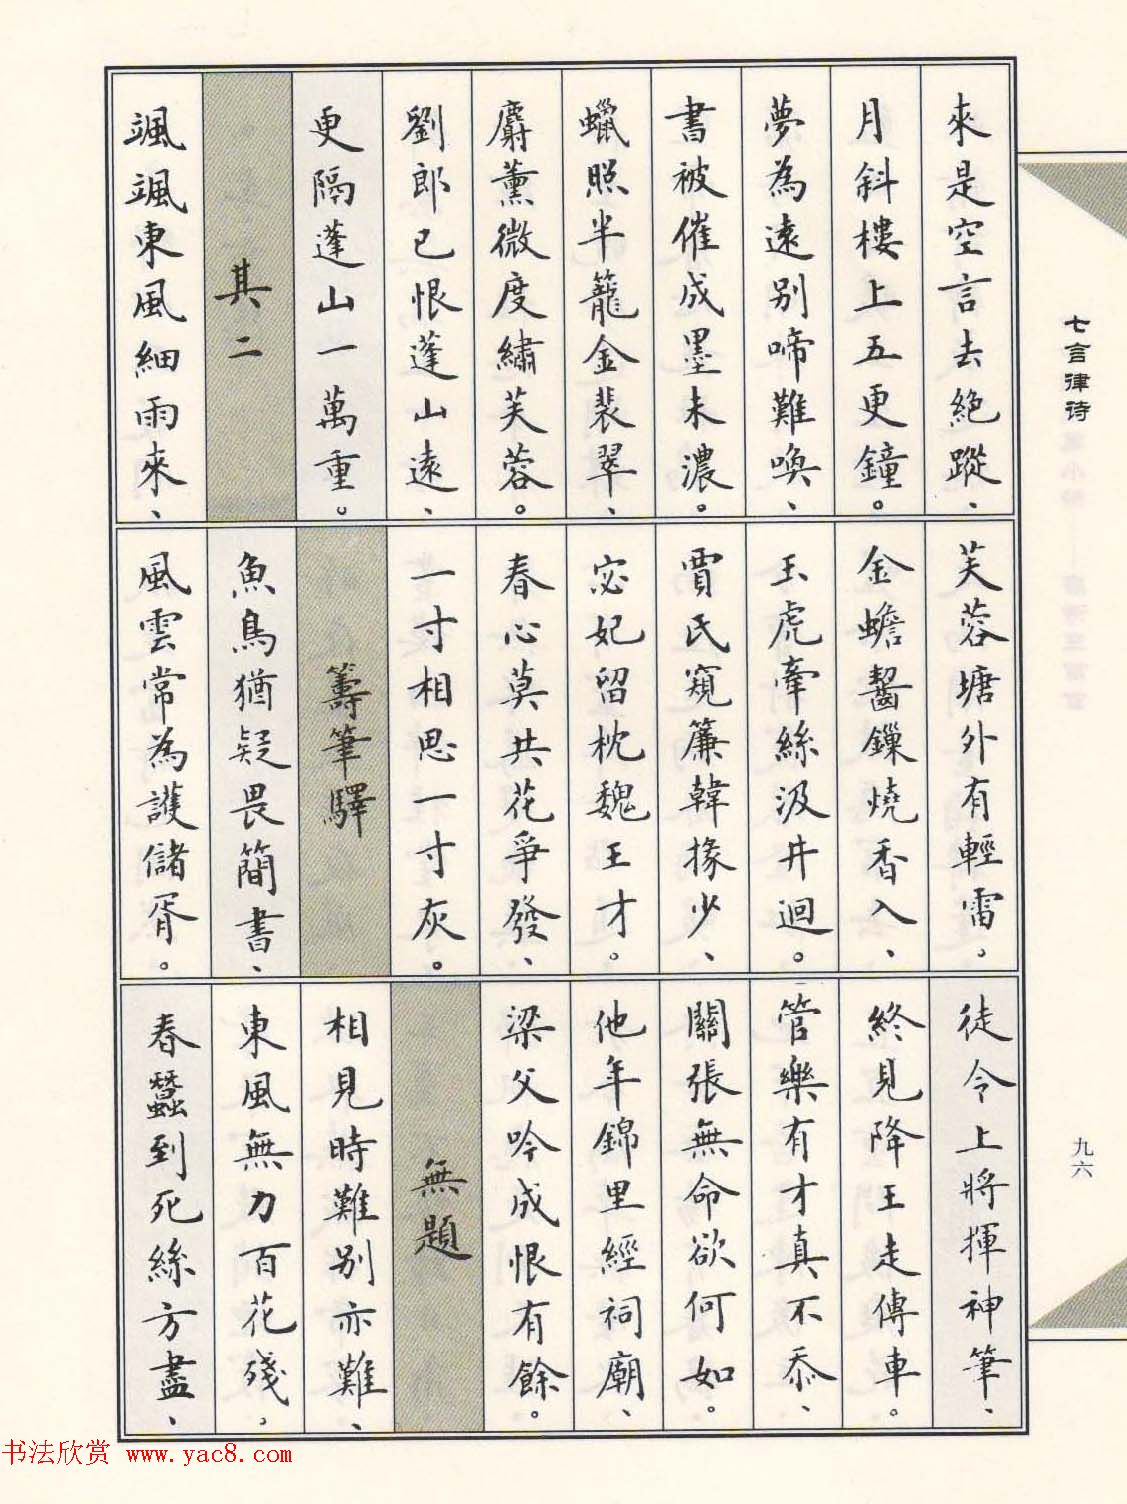 來是空言去絕蹤、
月斜樓上五更鐘。
夢為遠別啼難喚、
書被催成墨未濃。
蠟照半籠金裴翠、
麝薰微度繡芙蓉。
劉郎已恨蓬山遠、
更隔蓬山一萬重。
其二
颯颯東風細雨來、
芙蓉塘外有輕雷。
金蟾齧鏁燒香入、
玉虎牽絲汲井迴。
賈氏窺簾韓掾少、
宓妃留枕魏王才。
春心莫共花爭發、
一寸相思一寸灰。
籌筆驛
魚鳥猶疑畏簡書、
風雲常為護儲胥。
徒令上將揮神筆、
終見降王走傳車。
管樂有才真不忝、
關張無命欲何如。
他年錦里經祠廟、
梁父吟成恨有餘。
無題
相見時難別亦難、
東風無力百花殘。
春蠶到死絲方盡、
七言律诗
九六
书法欣赏 www.yac8.com